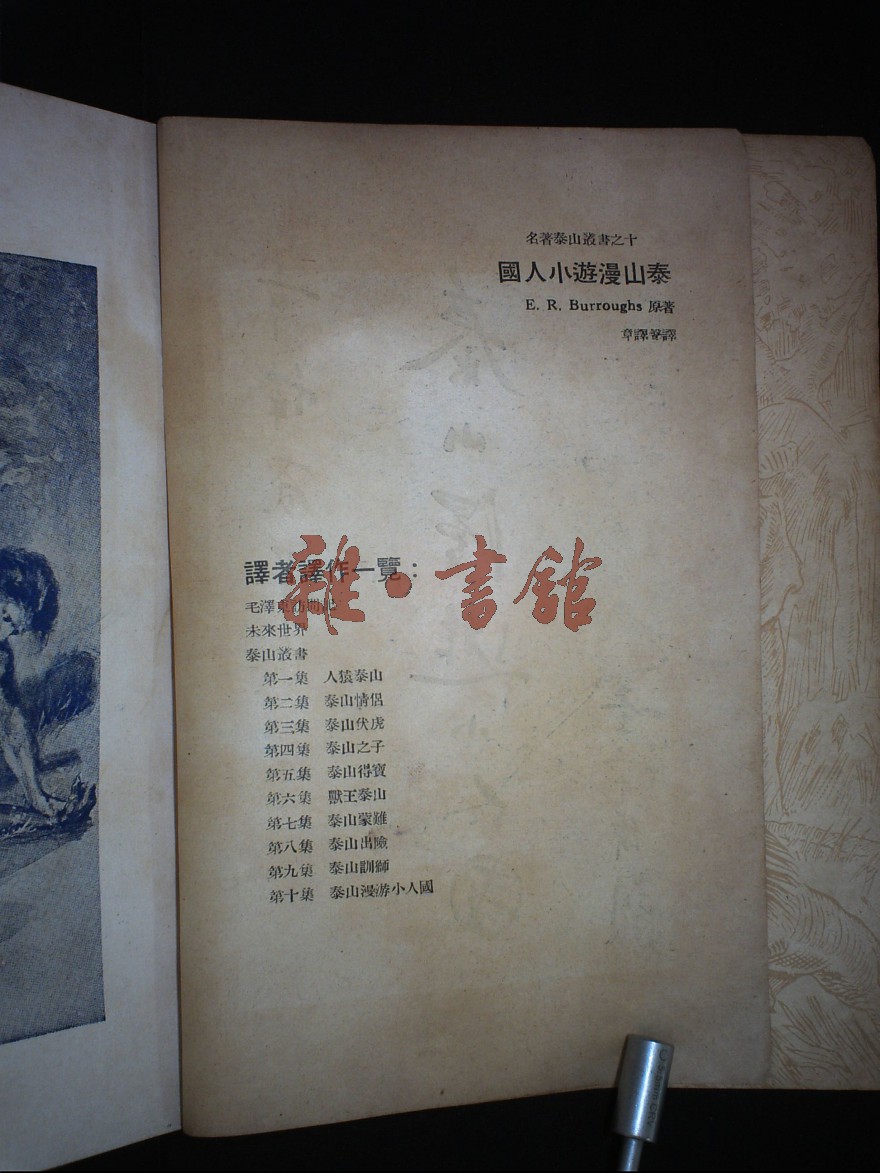 名著泰山叢書之十
泰山漫遊小人國
E. R. Burroughs 原著
章鐸聲譯
譯者譯作一覽：
毛澤東訪問記
未來世界
泰山叢書
第一集 人猿泰山
第二集 泰山情侶
第三集 泰山伏虎
第四集 泰山之子
第五集 泰山得寶
第六集 獸王泰山
第七集 泰山蒙難
第八集 泰山出險
第九集 泰山馴獅
第十集 泰山漫游小人國
雜·書館